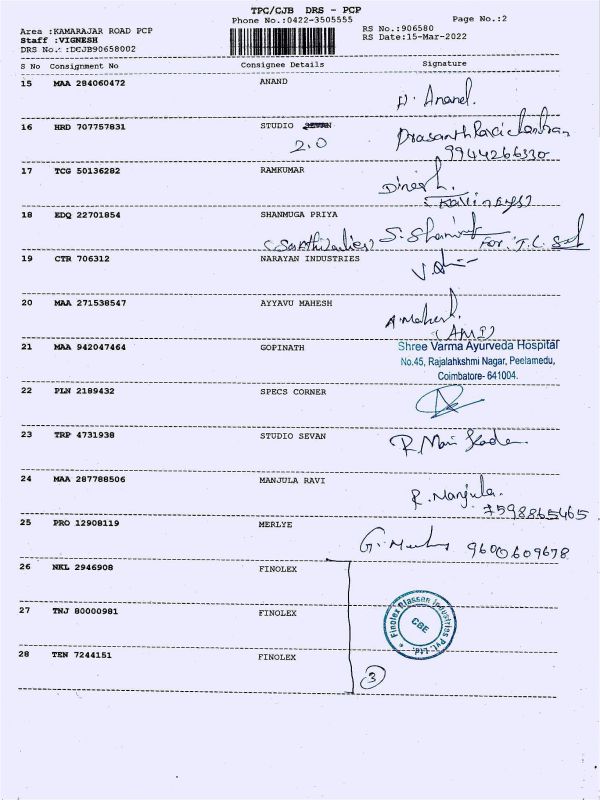 TPC/CJB DRS - PCP
Phone No.:0422-3505555 Page No.:2
Area :KAMARAJAR ROAD PCP RS No.:906580
Staff :VIGNESH RS Date:15-Mar-2022
DRS No.:DCJB90658002
S No Consignment No Consignee Details Signature
15 MAA 284060472 ANAND
Anand.
16 HRD 707757831 STUDIO SEVAN
2.0
9944266330
17 TCG 50136282 RAMKUMAR
Dinesh.
18 EDQ 22701854 SHANMUGA PRIYA
For.
19 CTR 706312 NARAYAN INDUSTRIES
20 MAA 271538547 AYYAVU MAHESH
A. Mahesh.
(AMI)
21 MAA 942047464 GOPINATH Shree Varma Ayurveda Hospital
No.45, Rajalahkshmi Nagar, Peelamedu,
Coimbatore- 641004.
22 PLN 2189432 SPECS CORNER
23 TRP 4731938 STUDIO SEVAN
24 MAA 287788506 MANJULA RAVI
R. Manjula.
7598865465
25 PRO 12908119 MERLYE
9600609678
26 NKL 2946908 FINOLEX
27 TNJ 80000981 FINOLEX
Finolex Plassen Industries Pvt. Ltd.
CBE
28 TEN 7244151 FINOLEX
3